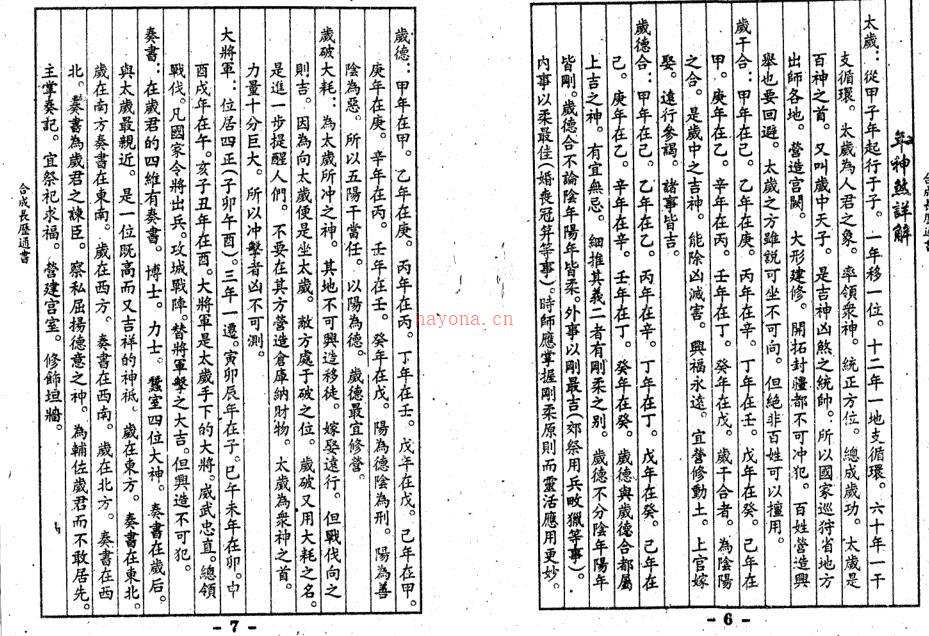 年神煞詳解
太歲：從甲子年起行子子。一年移一位。十二年一地支循環。六十年一干
支循環。太歲為人君之象。率領衆神。統正方位。總成歲功。太歲是
百神之首。又叫歲中天子。是吉神凶煞之統帥。所以國家巡狩省地方
出師各地。營造宮闕。大形建修。開拓封疆都不可冲犯。百姓營造興
舉也要回避。太歲之方雖説可坐不可向。但絕非百姓可以擅用。
歲干合：甲年在己。乙年在庚。丙年在辛。丁年在壬。戊年在癸。己年在
甲。庚年在乙。辛年在丙。壬年在丁。癸年在戊。歲干合者。為陰陽
之合。是歲中之吉神。能除凶滅害。興福永遠。宜營修動土。上官嫁
娶。遠行參謁。諸事皆吉。
歲德合：甲年在己。乙年在乙。丙年在辛。丁年在丁。戊年在癸。己年在
己。庚年在乙。辛年在辛。壬年在丁。癸年在癸。歲德與歲德合都屬
上吉之神。有宜無忌。細推其義二者有剛柔之别。歲德不分陰年陽年
皆剛。歲德合不論陰年陽年皆柔。外事以剛最吉（郊祭用兵畋獵等事）。
内事以柔最佳（婚喪冠笄等事）。時師應掌握剛柔原則而靈活應用更妙。
- 6 -
歲德：甲年在甲。乙年在庚。丙年在丙。丁年在壬。戊年在戊。己年在甲。
庚年在庚。辛年在丙。壬年在壬。癸年在戊。陽為德陰為刑。陽為善
陰為惡。所以五陽干當任。以陽為德。歲德最宜修營。
歲破大耗：為太歲所冲之神。其地不可興造移徙。嫁娶遠行。但戰伐向之
則吉。因為向太歲便是坐太歲。敵方處于破位。歲破又用大耗之名。
是進一步提醒人們。不要在其方營造倉庫納財物。太歲為衆神之首。
力量十分巨大。所以冲擊者凶不可測。
大將軍：位居四正（子卯午酉）。三年一遷。寅卯辰年在子。巳午未年在卯。申
酉戌年在午。亥子丑年在酉。大將軍是太歲手下的大將。威武忠直。總領
戰伐。凡國家令將出兵。攻城戰陣。替將軍擊之大吉。但興造不可犯。
奏書：在歲君的四維有奏書。博士。力士。蠶室四位大神。奏書在歲后。
與太歲最親近。是一位既高而又吉祥的神祗。歲在東方。奏書在東北。
歲在南方奏書在東南。歲在西方。奏書在西南。歲在北方。奏書在西
北。奏書為歲君之諫臣。察私屈揚德意之神。為輔佐歲君而不敢居先。
主掌奏記。宜祭祀求福。營建宮室。修飾垣墻。
合成長歷通書
- 7 -
hayona.cn